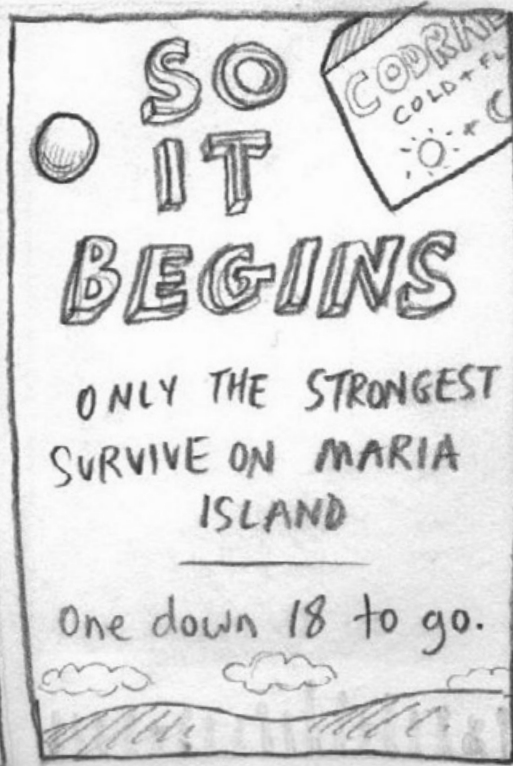 SO
IT
BEGINS
COLD +
ONLY THE STRONGEST
SURVIVE ON MARIA
ISLAND
One down 18 to go.